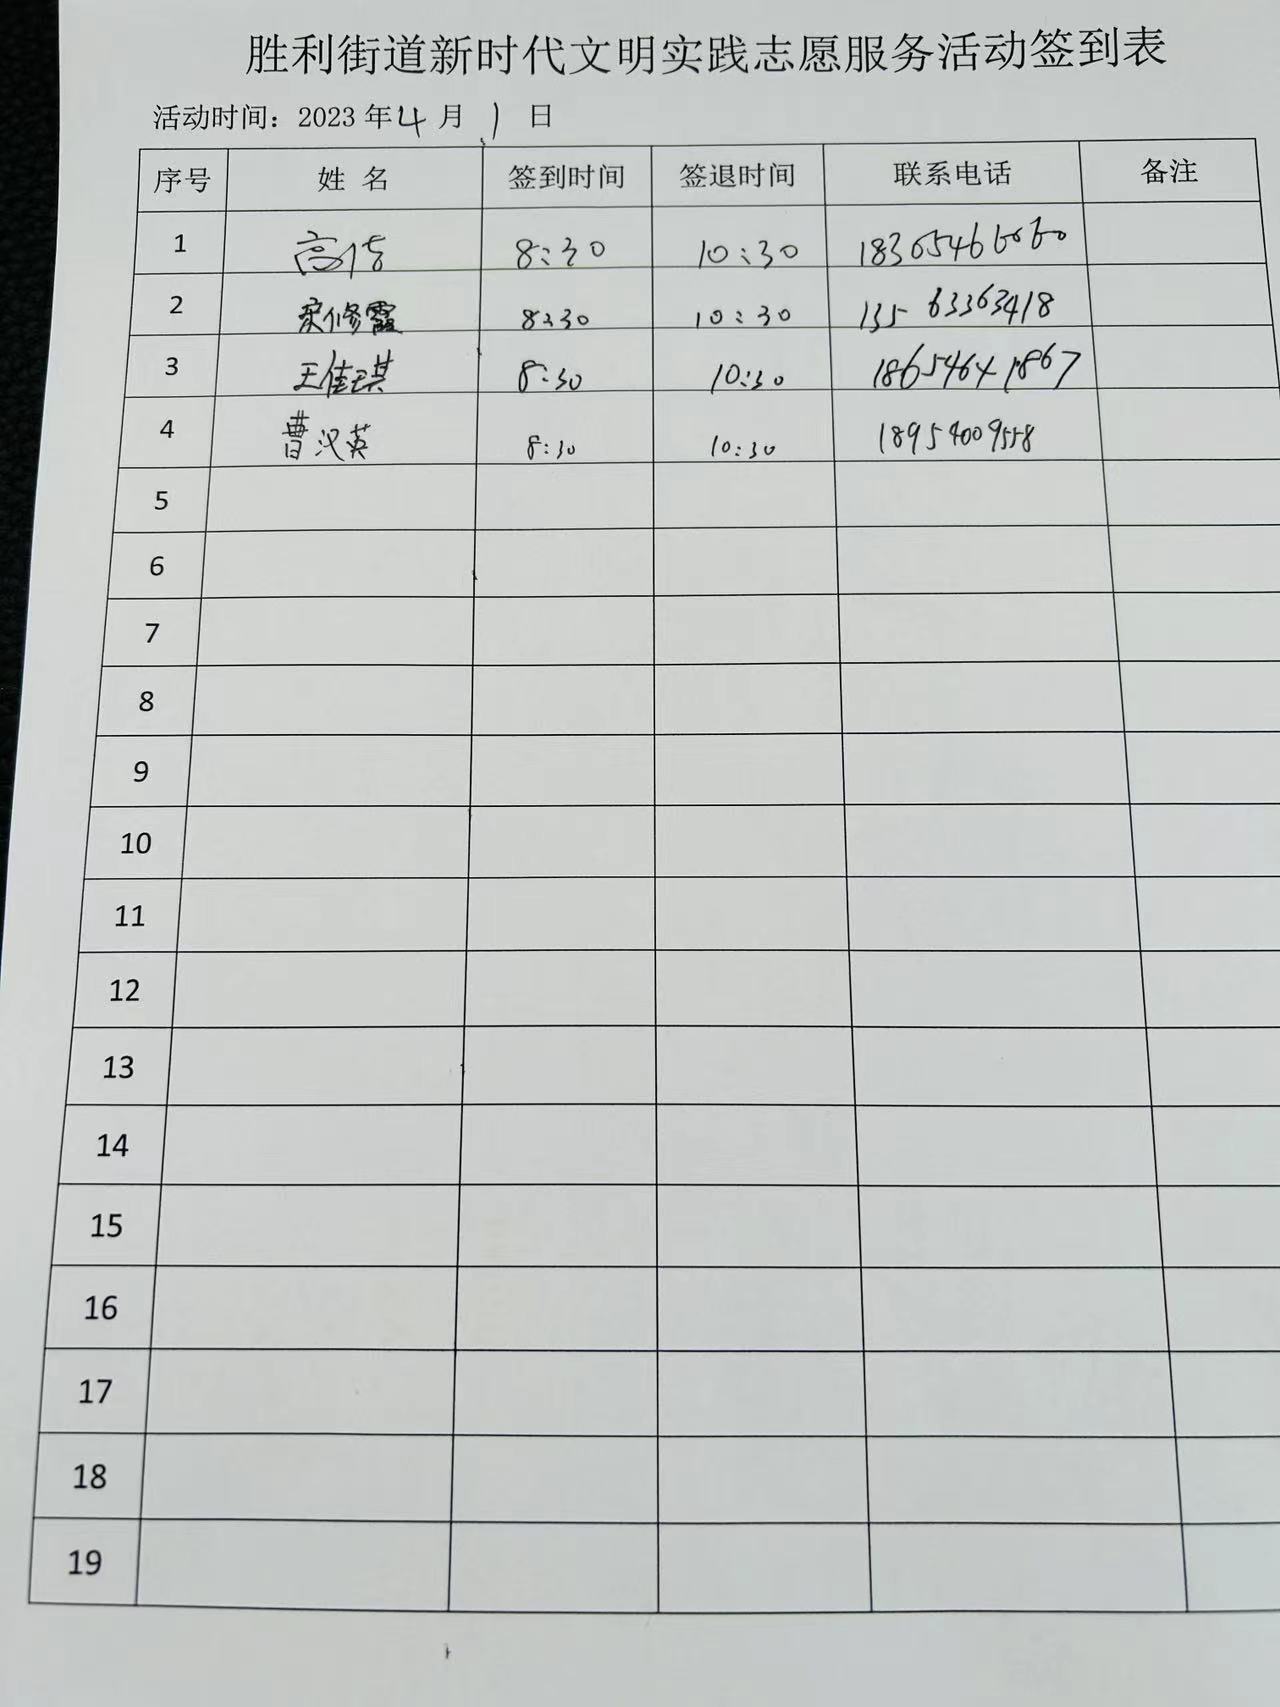 胜利街道新时代文明实践志愿服务活动签到表
活动时间：2023 年 4 月 1 日
序号 姓 名 签到时间 签退时间 联系电话 备注
1 高倩 8:30 10:30
2 修霞 8:30 10:30 135 63363418
3 王佳琪 8:30 10:30 18654641867
4 曹汉英 8:30 10:30 18954009558
5
6
7
8
9
10
11
12
13
14
15
16
17
18
19